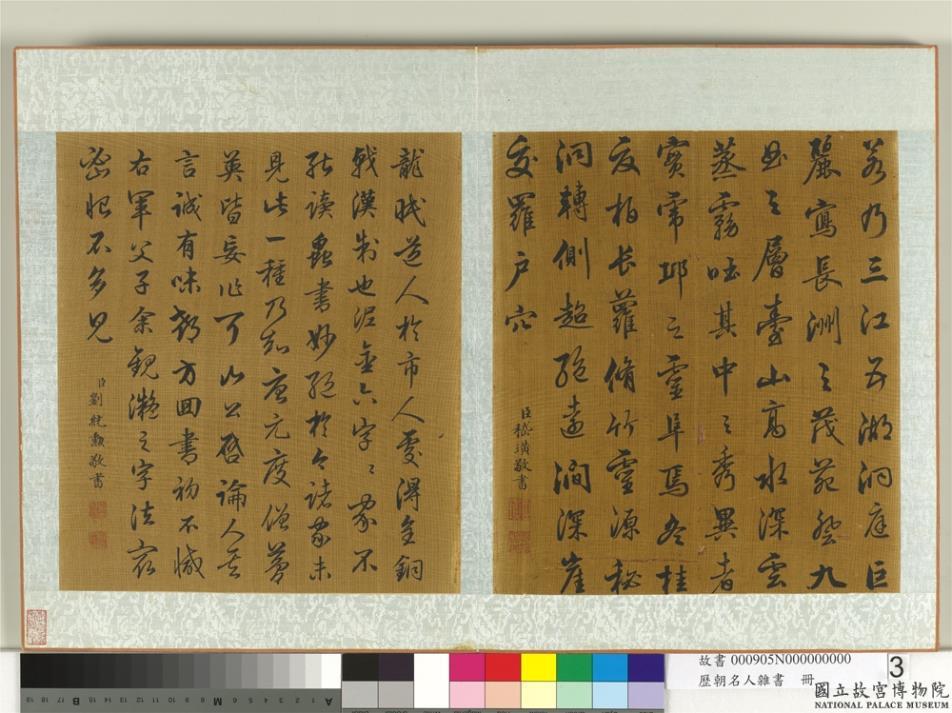 若乃三江五湖洞庭巨
麗寫長洲之茂苑登九
曲之層臺山高水深雲
蒸霧吐其中之秀異者
實帝邱之靈阜焉冬桂
夏柏長蘿脩竹靈源秘
洞轉側超絕遠澗深崖
交羅戶穴
臣嵇璜敬書
龍眠道人於市人處得金銅
戟漢制也泥金六字字家不
能讀蟲書妙絕於今諸家未
見此一種乃知唐元度僧夢
英皆妄作耳
言誠有味都方回書初不減
右軍父子余觀之字法
密恨不多見
臣劉統勳敬書
故書 000905N000000000
歷朝名人雜書 冊
3
國立故宮博物院
NATIONAL PALACE MUSEUM